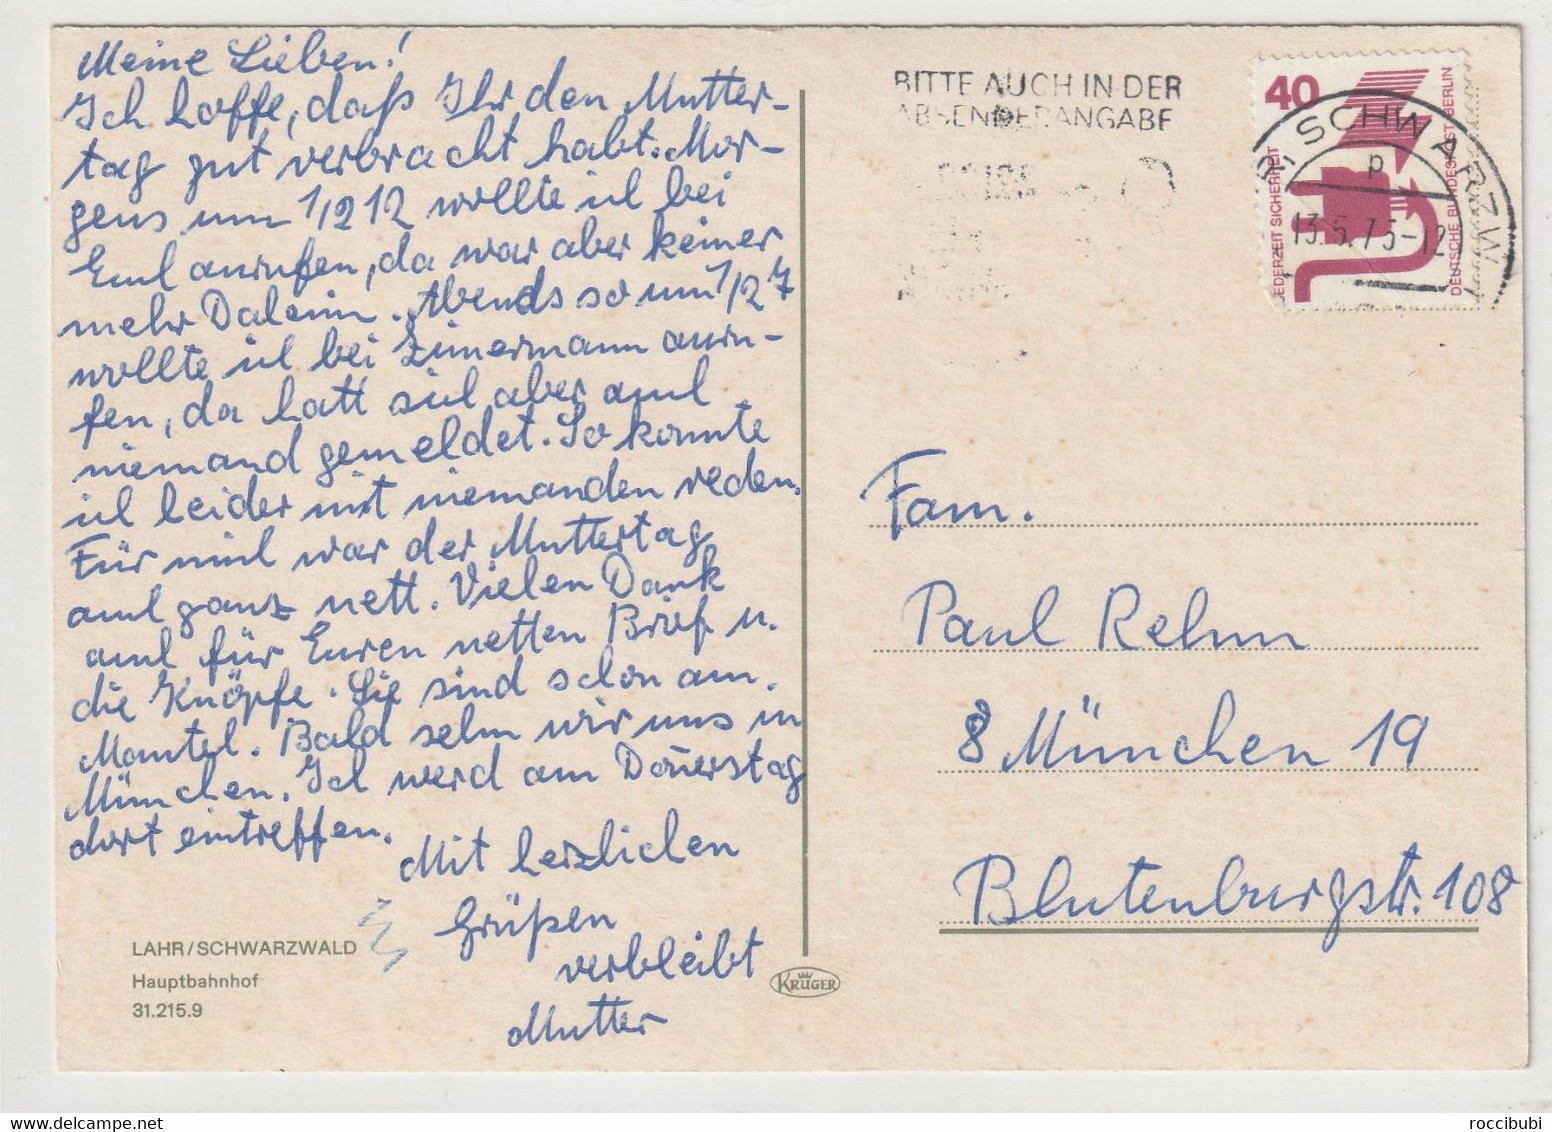 Meine Lieben!
Ich hoffe, daß Ihr den Mutter-
tag gut verbracht habt. Mor-
gens um 1/2 12 wollte ich bei
Eml anrufen, da war aber keiner
mehr Daheim. Abends so um 1/2 7
wollte ich bei Zimermann anru-
fen, da hatt sich aber auch
niemand gemeldet. So konnte
ich leider mit niemanden reden.
Für mich war der Muttertag
auch ganz nett. Vielen Dank
auch für Euren netten Brief u.
die Knöpfe. Sie sind schon am
Mantel. Bald sehn wir uns in
München. Ich werd am Donerstag
dort eintreffen.
Mit herzlichen
Grüßen
verbleibt
Mutter
LAHR/SCHWARZWALD
Hauptbahnhof
31.215.9
KRÜGER
BITTE AUCH IN DER
ABSENDERANGABE
40
JEDERZEIT SICHERHEIT
DEUTSCHE BUNDESPOST BERLIN
SCHWARZW
p
13.5.75-12
Fam.
Paul Rehm
8 München 19
Blutenburgstr. 108
roccibubi